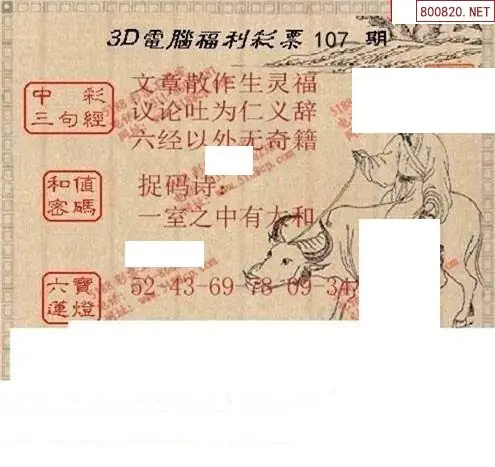 800820.NET
3D電腦福利彩票 107 期
中彩
三句經
文章散作生灵福
议论吐为仁义辞
六经以外无奇籍
和值
密碼
捉码诗：
一室之中有太和
六寶
蓮燈
52-43-69-78-09-34